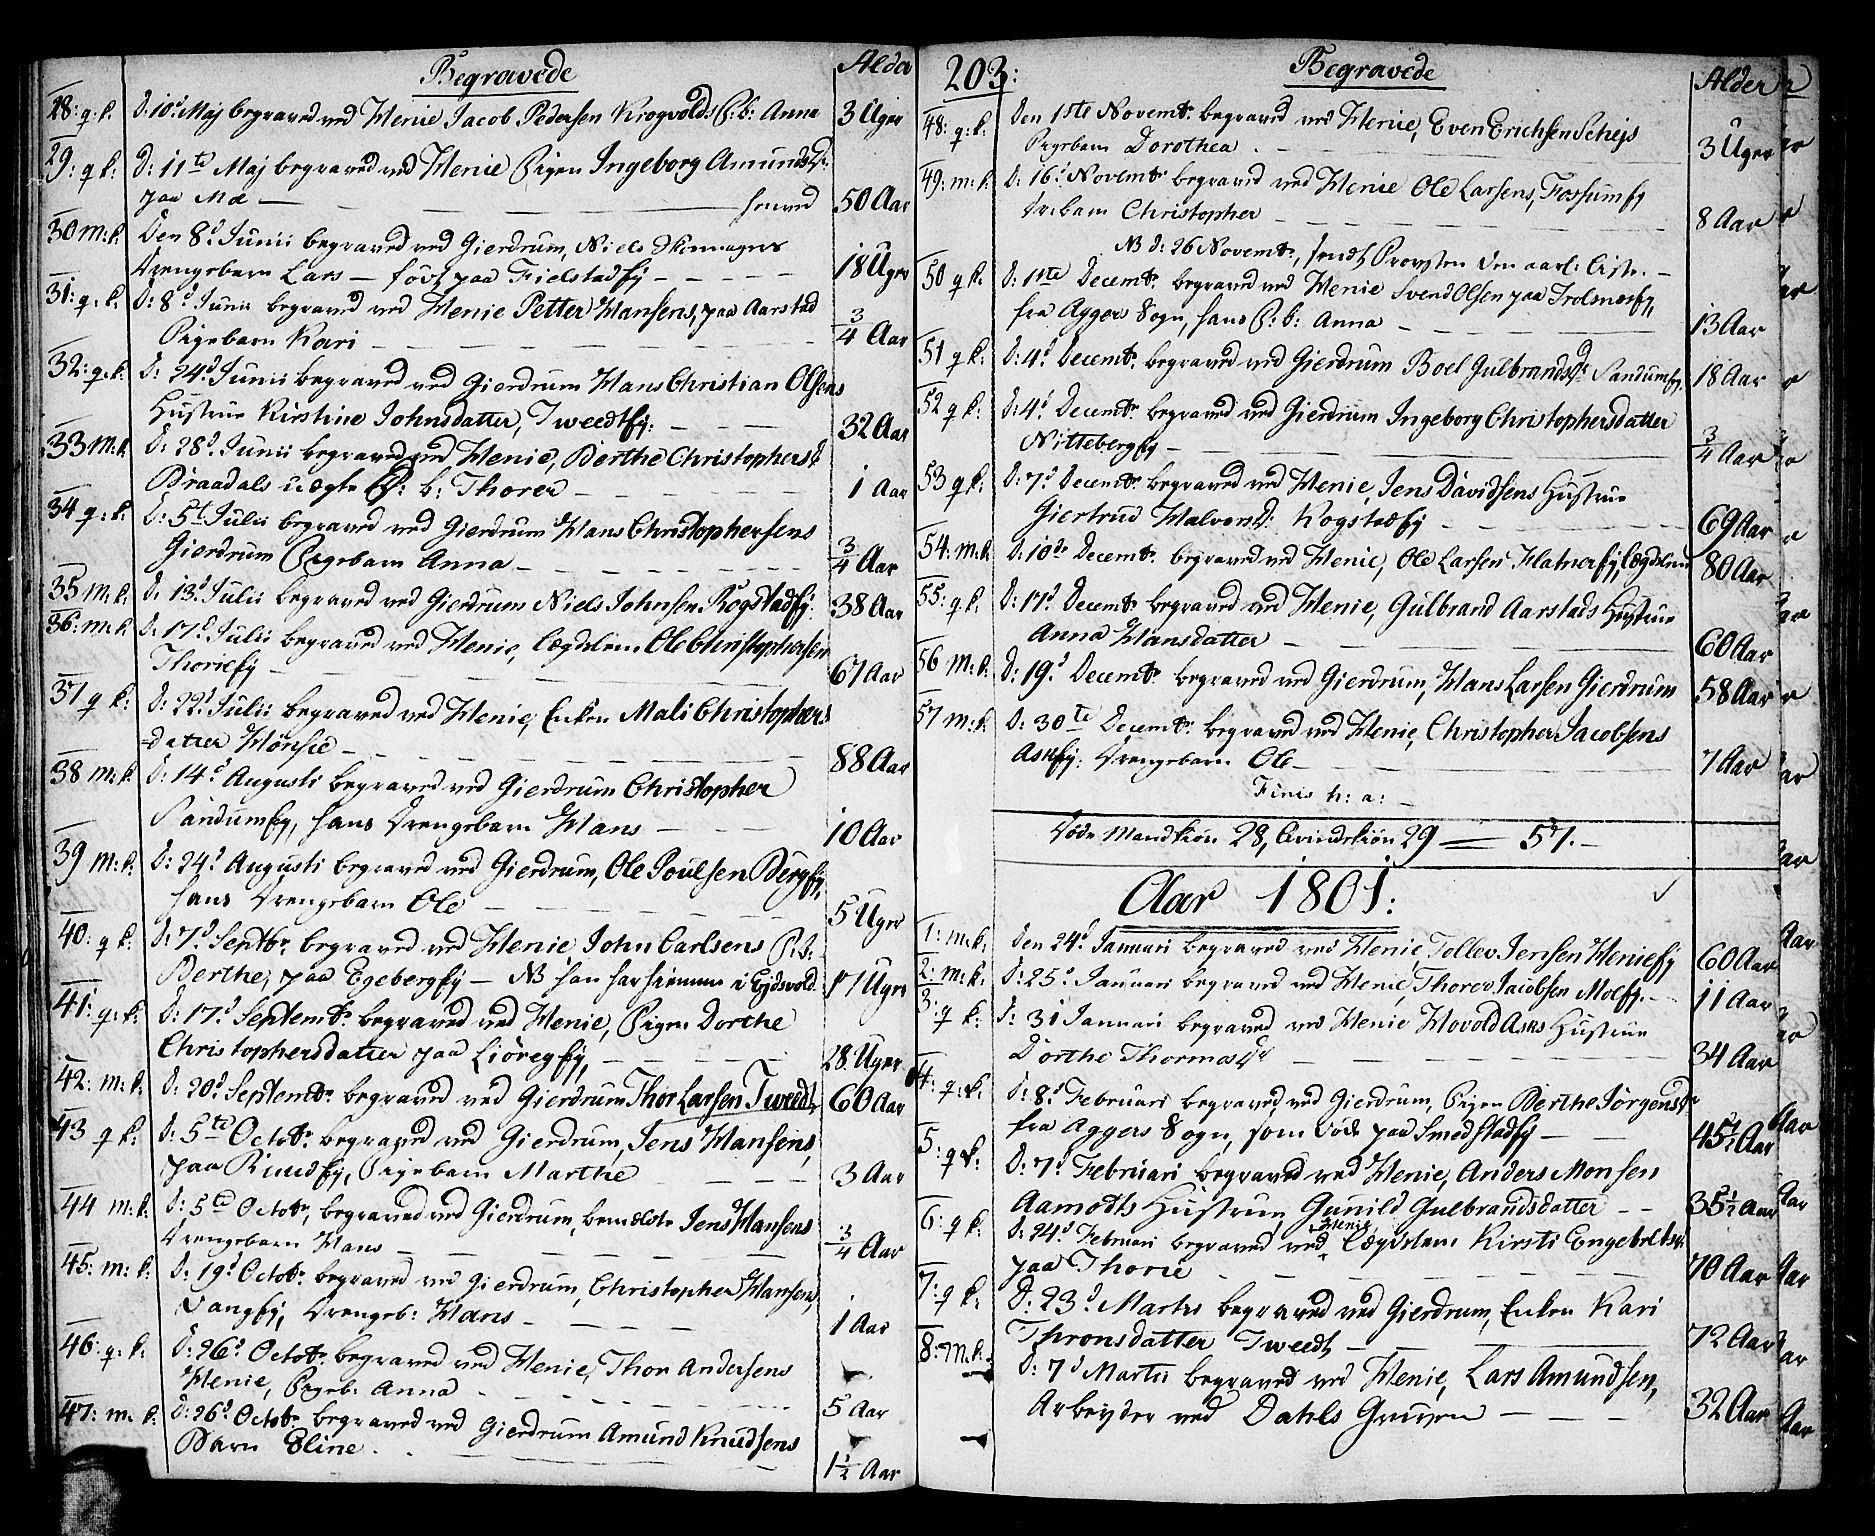 Begravede
Alder
28: q. k. d: 10d Maj begraved ved Henie Jacob Pedersen Krogvolds P. b: Anna 3 Uger
29: q k: D: 11te Maj begraved ved Henie Pigen Ingeborg Amundsdr:
paa Moe 50 Aar
30 m: k: Den 8d Junii begraved ved Gierdrum, Niels
Drengebarn Lars — født paa Fielstadej 18 Uger
31: q. k. d: 8d Junii begraved ved Henie Petter Hansens, paa Aarstad
Pigebarn Kari 3/4 Aar
32: q. k. D. 24d Junii begraved ved Gierdrum Hans Christian Olsens
Hustrue Kirstine Johnsdatter, Tweedtej: 32 Aar
33 m. k D. 28d Junii begraved ved Henie, Berthe Christophersd
Braadals uægte b: Thorer 1 Aar
34 q. k. D: 5t Julii begraved ved Gierdrum Hans Christophersens
Gierdrum Pigebarn Anna 3/4 Aar
35 m. k. D. 13d Julii begraved ved Gierdrum Niels Johnsen Kogstadej 38 Aar
36: m: k D: 17d Julii begraved ved Henie, Lægdslem Ole Christophersen
Thorieej 67 Aar
37 q k: D: 22d Julii begraved ved Henie, Enken Mali Christophers
-datter Hønsie 88 Aar
38 m: k. D: 14d Augusti begraved ved Gierdrum Christopher
Sandumej, hans Drengebarn Hans 10 Aar
39 m: k. D: 24d Augusti begraved ved Gierdrum, Ole Poulsen Bergej,
hans Drengebarn Ole 5 Uger
40: q k: D: 7d Septbr. begraved ved Henie John Carlsens P. b:
Berthe, paa Egebergej — NB han har hiemme i Ejdsvold 17 Uger
41: q: k: D: 17d Septembr. begraved ved Henie, Pigen Dorthe
Christophersdatter paa Liöregej, 28 Uger
42: m: k. D: 20d Septembr. begraved ved Gierdrum Thor Larsen Tweedt, 60 Aar
43 q k: D: 5te Octobr. begraved ved Gierdrum, Jens Hansens,
paa Ruudej, Pigebarn Marthe 3 Aar
44 m: k: D: 5te Octobr, begraved ved Gierdrum, bemeldte Jens Hansens
Drengebarn Hans 3/4 Aar
45: m: k: D: 19d Octobr. begraved ved Gierdrum, Christopher Hansens,
Vangej, Drengeb: Hans 1 Aar
46: q. k: D: 26d. Octobr. begraved ved Henie, Thor Andersens
Henie, Pigeb: Anna 5 Aar
47: m. k: D: 26d. Octobr. begraved ved Gierdrum Amund Knudsens
Barn Eline 1 1/2 Aar
203:
Begravede
Alder
48: q: k: Den 1ste Novembr. begraved ved Henie, Even Erichsen Schejs
Pigebarn Dorothea 3 Uger
49: m: k D: 16d Novembr begraved ved Henie Ole Larsens, Fossumej
Drebarn Christopher 8 Aar
NB d: 26 Novembr., sendt Provsten den aarl: Liste.
50 q k: D: 1ste Decembr. begraved ved Henie Svend Olsen paa Trolmosej,
fra Aggers Sogn, hans P: b: Anna 13 Aar
51 q k: D: 4d Decembr. begraved ved Gierdrum Boel Gulbrandsdr Sandumej, 18 Aar
52 q k: D: 4d Decembr. begraved ved Gierdrum Ingeborg Christophersdatter
Nittebergej 3/4 Aar
53 q k: D: 7d Decembr. begraved ved Henie, Jens Davidsens Hustrue
Giertrud Halvorsd: Kogstadej 69 Aar
54: m: k. D: 10de Decembr. begraved ved Henie, Ole Larsen Holmerej, Lægdslem 80 Aar
55: q k: D: 17d Decembr begraved ved Henie, Gulbrand Aarstads Hustrue
Anna Hansdatter 60 Aar
56 m: k. D: 19d Decembr. begraved ved Gierdrum, Hans Larsen Gierdrum 58 Aar
57 m: k. D: 30te Decembr. begraved ved Henie, Christopher Jacobsens
Askej: Drengebarn Ole 7 Aar
Finis h: a:
Døde Mandkiøn 28, Qvindekiøn 29 = 57.
Aar 1801:
1: m: k: Den 24d Januari begraved ved Henie, Tollev Jensen Henieej 60 Aar
2: m: k. D: 25d Januari begraved ved Henie, Thorer Jacobsen Moeej. 11 Aar
3: q k: D: 31 Januari begraved ved Henie Hovold Asks Hustrue
Dorthe Thormosdr 34 Aar
4: q: k. D: 8d Februari begraved ved Gierdrum, Pigen Berthe Jörgensdr
fra Aggers Sogn, som døde paa Smedstadej 45 1/2 Aar
5: q k. D: 7d Februari begraved ved Henie, Anders Monsen
Aamodts Hustrue Gunild Gulbrandsdatter 35 1/2 Aar
6: q k. D: 24d Februari begraved ved Henie Lægdslem Kirsti Engebretsd
paa Thorie 70 Aar
7: q k. D: 23d Martii begraved ved Gierdrum, Enken Kari
Thronsdatter Tweedt 72 Aar
8: m. k. D: 7d Martii begraved ved Henie, Lars Amundsen,
Arbeyder ved Dahls Gruven 32 Aar